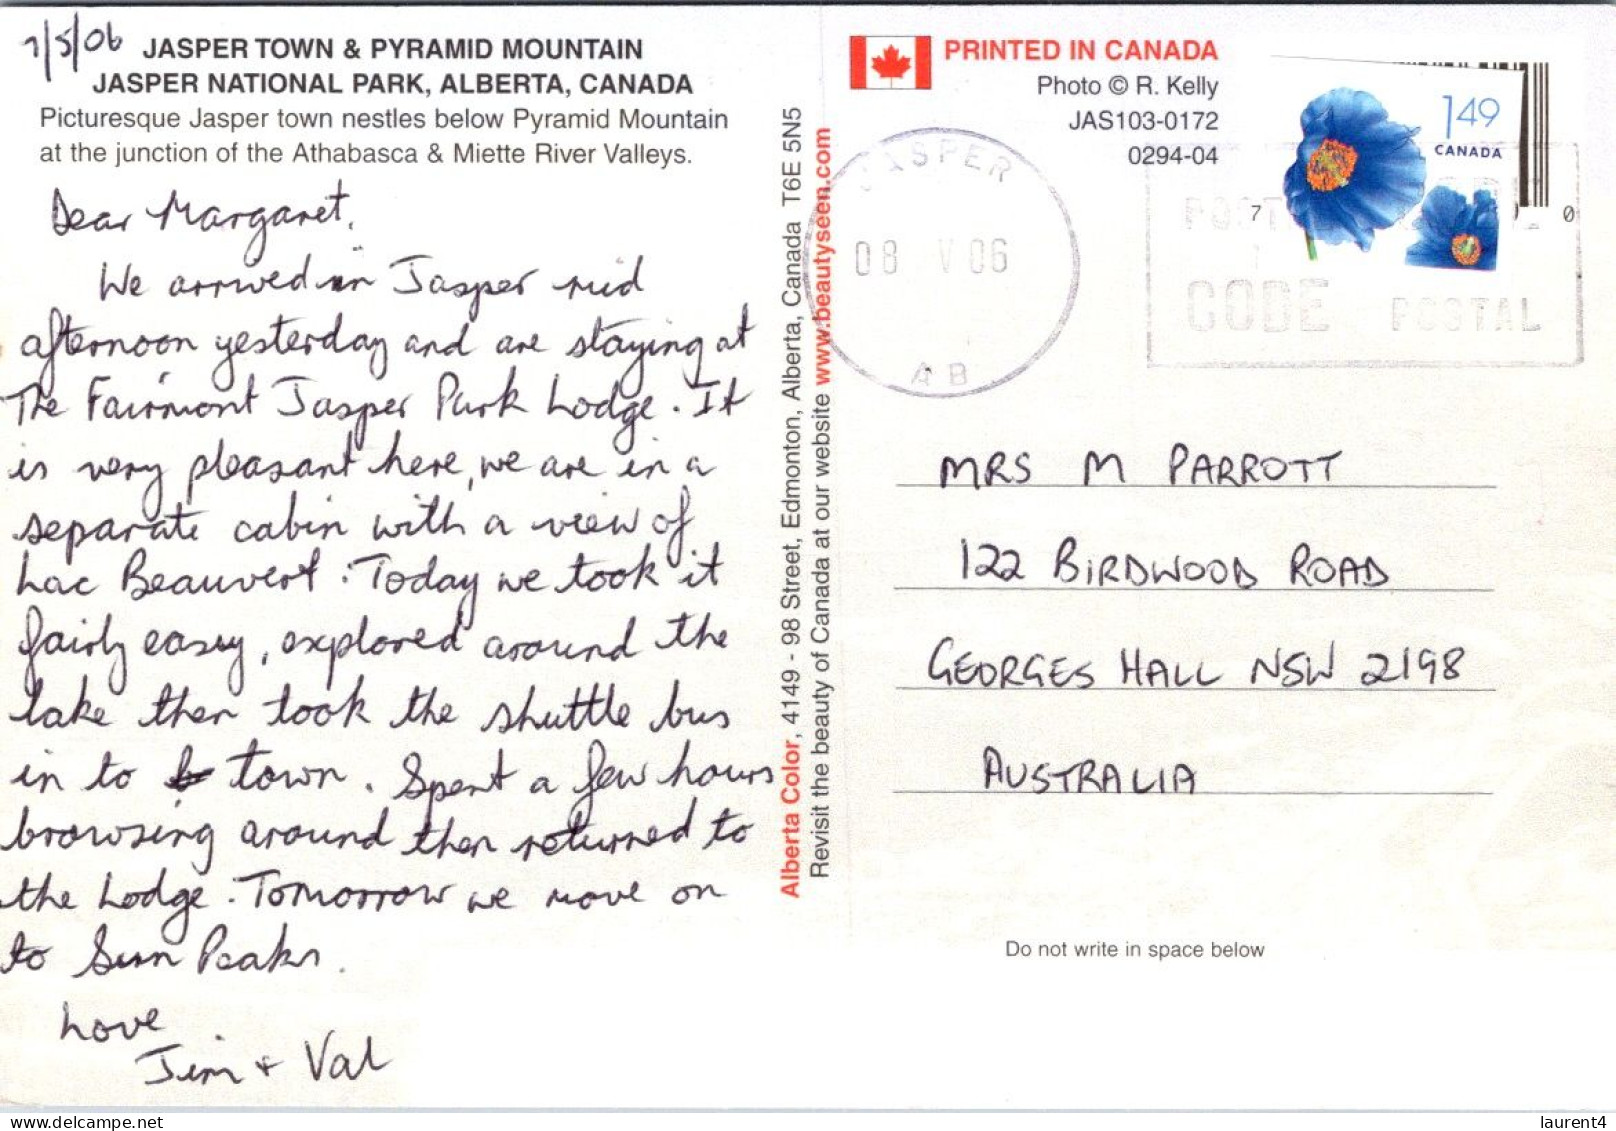 7/5/06
JASPER TOWN & PYRAMID MOUNTAIN
JASPER NATIONAL PARK, ALBERTA, CANADA
Picturesque Jasper town nestles below Pyramid Mountain
at the junction of the Athabasca & Miette River Valleys.
Dear Margaret,
We arrived in Jasper mid
afternoon yesterday and are staying at
The Fairmont Jasper Park Lodge. It
is very pleasant here, we are in a
separate cabin with a view of
Lac Beauvert. Today we took it
fairly easy, explored around the
lake then took the shuttle bus
in to town. Spent a few hours
browsing around then returned to
the Lodge. Tomorrow we move on
to Sun Peaks.
Love
Jim + Val
Alberta Color, 4149 - 98 Street, Edmonton, Alberta, Canada T6E 5N5
Revisit the beauty of Canada at our website www.beautyseen.com
PRINTED IN CANADA
Photo © R. Kelly
JAS103-0172
0294-04
JASPER
08 V 06
AB
1.49
CANADA
7
0
POSTAL
CODE POSTAL
MRS M PARROTT
122 BIRDWOOD ROAD
GEORGES HALL NSW 2198
AUSTRALIA
Do not write in space below
laurent4